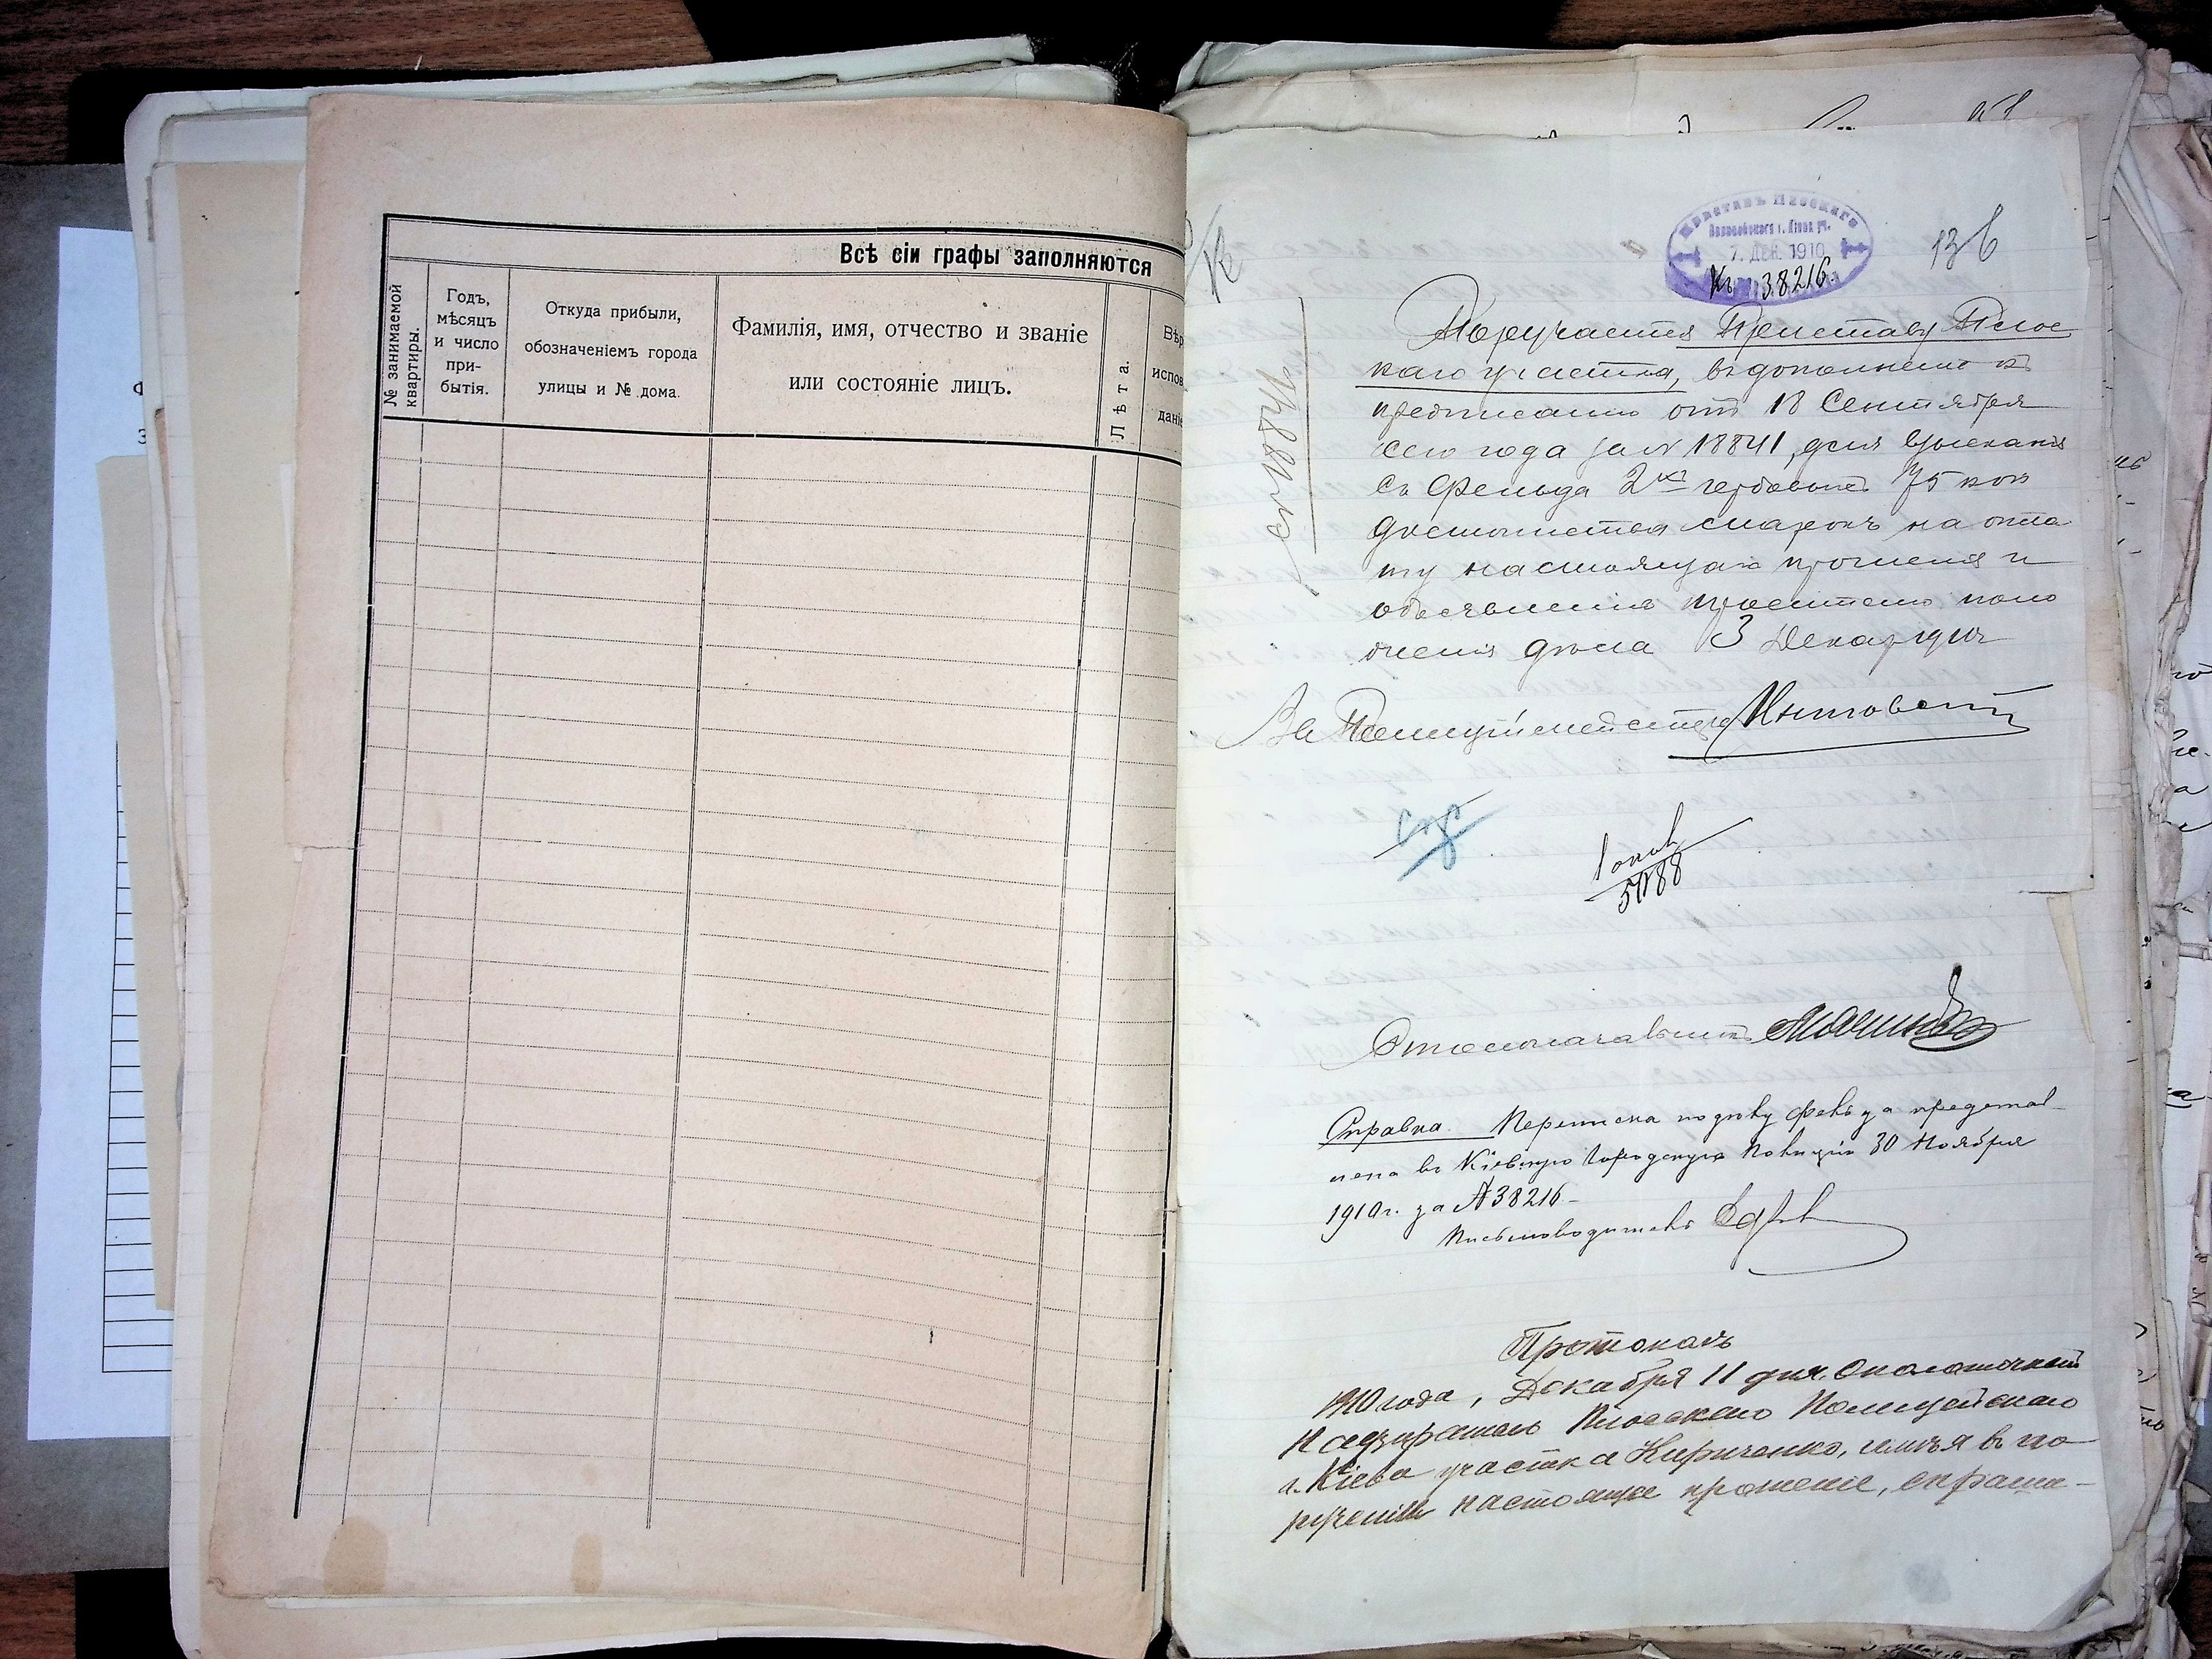 Всѣ сіи графы заполняются
№ занимаемой
квартиры.
Годъ,
мѣсяцъ
и число
при-
бытія.
Откуда прибыли,
обозначеніемъ города
улицы и № дома.
Фамилія, имя, отчество и званіе
или состояніе лицъ.
Лѣта.
Вѣр
испов
даніе
Приставъ Плоскаго
7. ДЕК. 1910
Къ 38216.
136
№ 18841
Поручается Приставу Плос
каго участка, въ дополненіе къ
предписанію отъ 18 Сентября
сего года за № 18841, для взысканія
съ Фельда 2хъ гербовыхъ 75 коп
достоинства марокъ на опла
ту настоящаго прошенія и
объявленія просителю поло
женія дѣла 3 Декабр 1910 г
За Полиціймейстера
Столоначальникъ
Справка. Переписка по дѣлу Фельда представ-
лена въ Кіевскую Городскую Полицію 30 Ноября
1910 г. за № 38216 -
Письмоводитель
Протоколъ
1910 года, Декабря 11 дня. Околоточный
Надзиратель Плоскаго Полицейскаго
г. Кіева участка Кириченко, имѣя въ по-
рученіи настоящее прошеніе, спраши-